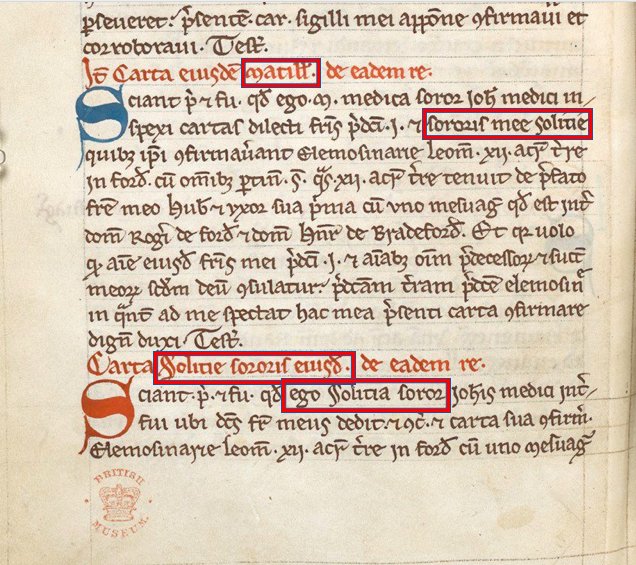 perseueret. p̄sentē. car. sigilli mei appōne ꝯfirmaui et
corroboraui. Test̄.
It̄. Carta eiusdē Matill̄. de eadem re.
Sciant p̄. ⁊ fu. qd̄ ego. M. medica soror Joh̄. medici in-
spexi cartas dilecti fr̄is p̄dc̄i. I. ⁊ sororis mee Solitie
quibȝ ip̄i ꝯfirmau̾ant elemosinarie Leom̄. xii. acr̄. t̄re
in ford̄. cū om̄ibȝ ꝑtin̄. s̄. q̄s. xii. acr̄. t̄re tenuit de p̄fato
fr̄e meo Hub̄. ⁊ vxor sua p̄ma cū vno mesuaḡ. qd̄ est int̄
dom̄. Rog̾i de ford̄. ⁊ dom̄. Hnr̄. de Bradeford̄. Et qr̄ uolo
qͥ aīe eiusd̄. fr̄is mei p̄dc̄i. I. ⁊ aīabȝ oīm p̄decessorȝ ⁊ succ̄.
meorȝ scd̄m deū ꝯsulatur. p̄dc̄am t̄ram p̄dc̄e elemosin̄.
in qͣnt̄ ad me spectat hac mea p̄senti carta ꝯfirmare
dign̄ duxi. Test̄.
Carta Solitie sororis eiusd̄. de eadem re.
Sciant. p̄. ⁊ fu. qd̄ ego Solitia soror Joh̄is medici int̄-
fui ubi dc̄s fr̄ meus dedit. ⁊ ꝯc̄. ⁊ carta sua ꝯfirm̄.
Elemosinarie Leom̄. xii. acr̄. t̄re in ford̄. cū uno mesuaḡ
BRITISH
MUSEUM